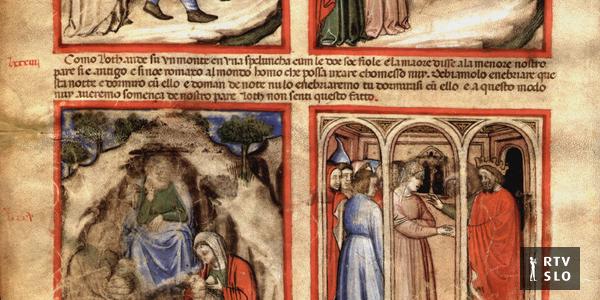 Como Loth ando su un monte en una speluncha cum le doe soe fiole e la maore disse a la menore nostro
pare si e antigo e si no e romaxo al mondo homo che possa uxare chomesso nuy. Debiamolo enebriare que
sta notte e dormiro cū ello e doman de note nu lo enebriaremo tu dormirai cū ello e a questo modo
nuy averemo somença de nostro pare Loth non senti questo fatto.
RTV
SLO